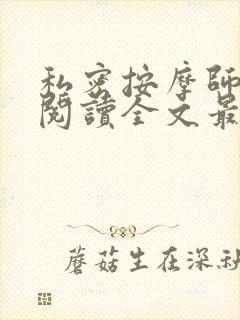 私密按摩師
閱讀全文最
蘑菇生在深秋